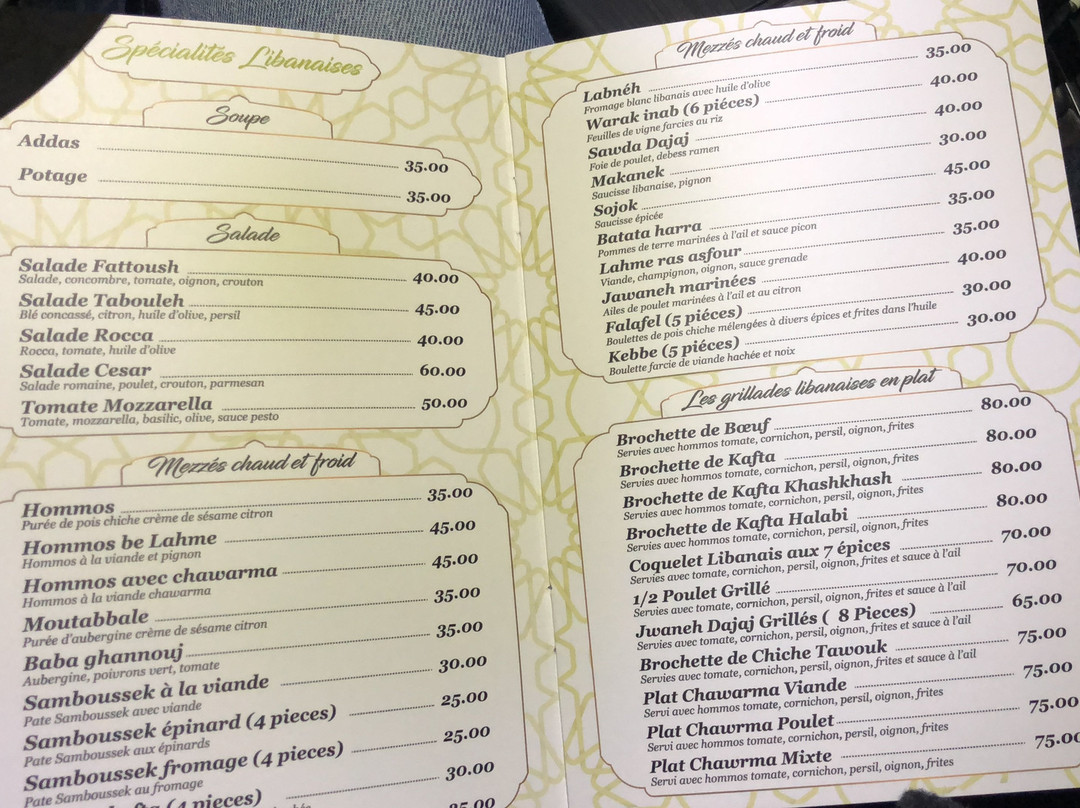 Spécialités Libanaises
Soupe
Addas 35.00
Potage 35.00
Salade
Salade Fattoush 40.00
Salade, concombre, tomate, oignon, crouton
Salade Tabouleh 45.00
Blé concassé, citron, huile d'olive, persil
Salade Rocca 40.00
Rocca, tomate, huile d'olive
Salade Cesar 60.00
Salade romaine, poulet, crouton, parmesan
Tomate Mozzarella 50.00
Tomate, mozzarella, basilic, olive, sauce pesto
Mezzés chaud et froid
Hommos 35.00
Purée de pois chiche crème de sésame citron
Hommos be Lahme 45.00
Hommos à la viande et pignon
Hommos avec chawarma 45.00
Hommos à la viande chawarma
Moutabbale 35.00
Purée d'aubergine crème de sésame citron
Baba ghannouj 35.00
Aubergine, poivrons vert, tomate
Samboussek à la viande 30.00
Pate Samboussek avec viande
Samboussek épinard (4 pieces) 25.00
Pate Samboussek aux épinards
Samboussek fromage (4 pieces) 25.00
Pate Samboussek au fromage
(4 pieces) 30.00
Mezzés chaud et froid
Labnéh 35.00
Fromage blanc libanais avec huile d'olive
Warak inab (6 piéces) 40.00
Feuilles de vigne farcies au riz
Sawda Dajaj 40.00
Foie de poulet, debess ramen
Makanek 30.00
Saucisse libanaise, pignon
Sojok 45.00
Saucisse épicée
Batata harra 35.00
Pommes de terre marinées à l'ail et sauce picon
Lahme ras asfour 35.00
Viande, champignon, oignon, sauce grenade
Jawaneh marinées 40.00
Ailes de poulet marinées à l'ail et au citron
Falafel (5 piéces) 30.00
Boulettes de pois chiche mélengées à divers épices et frites dans l'huile
Kebbe (5 piéces) 30.00
Boulette farcie de viande hachée et noix
Les grillades libanaises en plat
Brochette de Bœuf 80.00
Servies avec hommos tomate, cornichon, persil, oignon, frites
Brochette de Kafta 80.00
Servies avec hommos tomate, cornichon, persil, oignon, frites
Brochette de Kafta Khashkhash 80.00
Servies avec hommos tomate, cornichon, persil, oignon, frites
Brochette de Kafta Halabi 80.00
Servies avec hommos tomate, cornichon, persil, oignon, frites
Coquelet Libanais aux 7 épices 70.00
Servies avec tomate, cornichon, persil, oignon, frites et sauce à l'ail
1/2 Poulet Grillé 70.00
Servies avec tomate, cornichon, persil, oignon, frites et sauce à l'ail
Jwaneh Dajaj Grillés ( 8 Pieces) 65.00
Servies avec tomate, cornichon, persil, oignon, frites et sauce à l'ail
Brochette de Chiche Tawouk 75.00
Servies avec tomate, cornichon, persil, oignon, frites et sauce à l'ail
Plat Chawarma Viande 75.00
Servi avec hommos tomate, cornichon, persil, oignon, frites
Plat Chawrma Poulet 75.00
Servi avec hommos tomate, cornichon, persil, oignon, frites
Plat Chawrma Mixte 75.00
Servi avec hommos tomate, cornichon, persil, oignon, frites